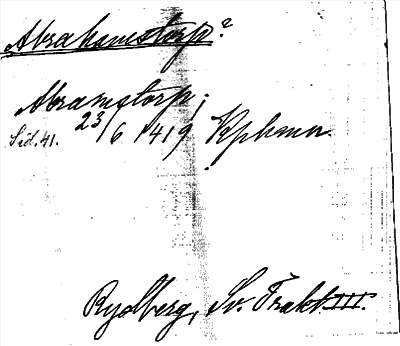 Abrahamstorp?
Abramstorp;
Sid. 41. 23/6 1419 Kphamn.
Rydberg, Sv. Trakt. III.